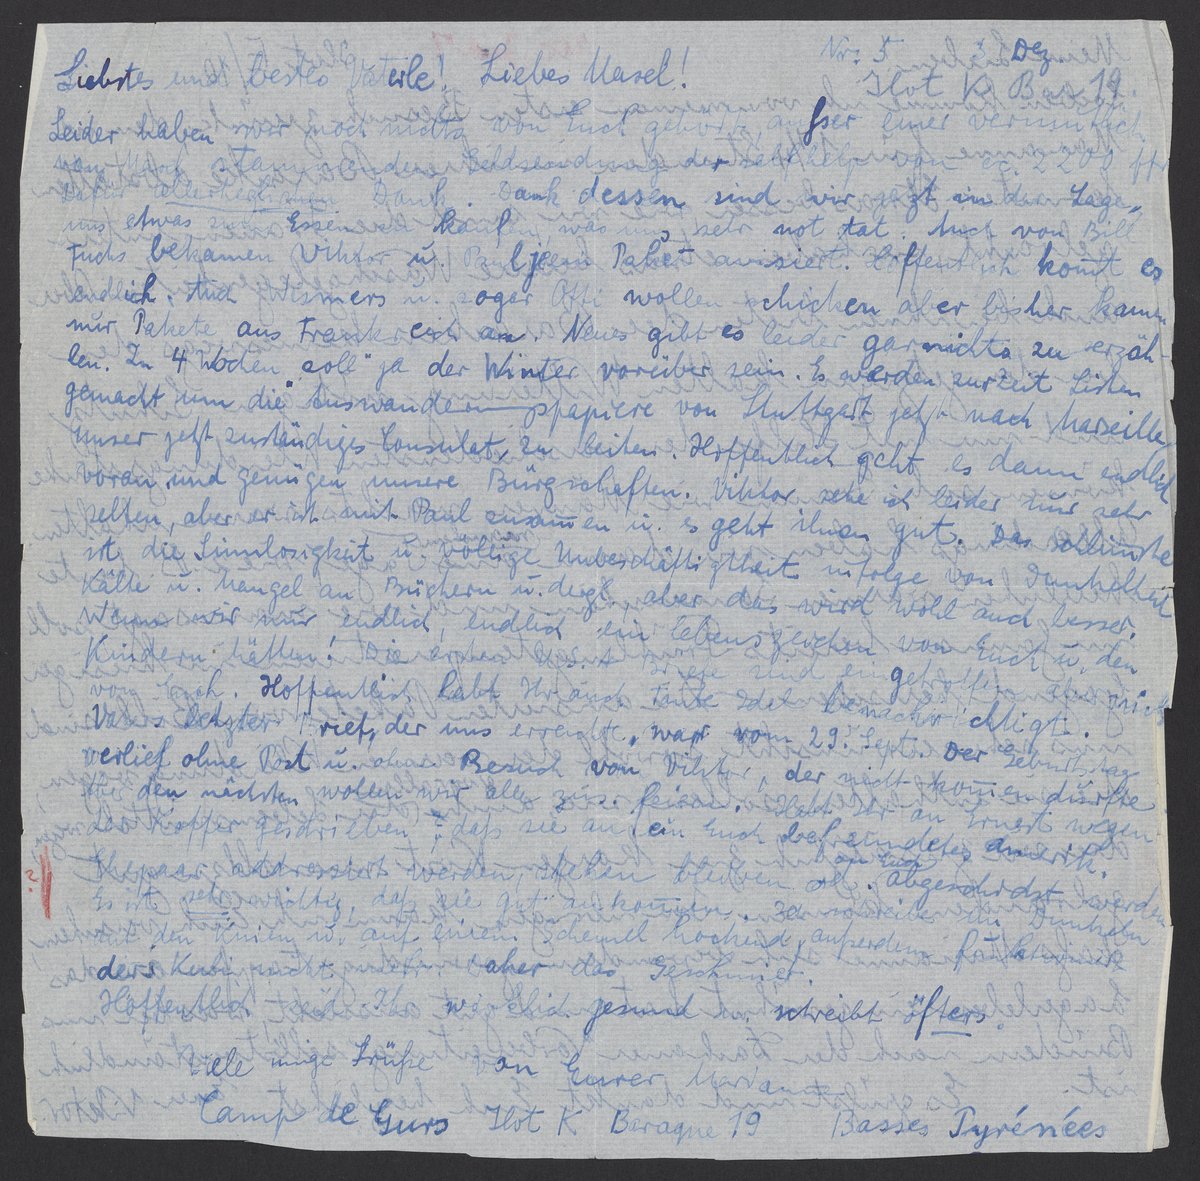 Nr. 5 3. Dez
Liebstes und bestes Vaterle! Liebes Masel! Ilot K Bar 19.
Leider haben wir noch nichts von Euch gehört, ausser einer
von Euch stammenden Geldsendung der von ca. 2200 ffr
Dafür allerherzlichsten Dank. Dank dessen sind wir jetzt in der Lage,
uns etwas zum Essen zu kaufen, was uns sehr not tat. Auch von Bill
Fuchs bekamen Viktor u. Paul je ein Paket avisiert. Hoffentlich kom̄t es
endlich. Auch Wismers u. sogar Offi wollen schicken aber bisher kamen
nur Pakete aus Frankreich an. Neues gibt es leider garnichts zu erzäh-
len. In 4 Wochen "soll" ja der Winter vorüber sein. Es werden zurzeit Listen
gemacht um die Auswanderungspapiere von Stuttgart jetzt nach Marseille,
unser jetzt zuständiges Consulat, zu leiten. Hoffentlich geht es dann endlich
voran und genügen unsere Bürgschaften. Viktor sehe ich leider nur sehr
selten, aber er ist mit Paul zusam̄en u. es geht ihnen gut. Das schlimste
ist die Sinnlosigkeit u. völlige Unbeschäftigtheit infolge von Dunkelheit
Kälte u. Mangel an Büchern u. dergl. aber das wird wohl auch besser.
Wenn wir nur endlich, endlich ein Lebenszeichen von Euch u. den
Kindern hätten! Die ersten U.S.A Briefe sind eingetroffen aber nicht
von Euch. Hoffentlich habt Ihr auch Tante benachrichtigt.
Vaters letzter Brief, der uns erreichte, war vom 29. Sept. Der Geburtstag
verlief ohne Post u. ohne Besuch von Viktor, der nicht kom̄en durfte
für den nächsten wollen wir alle zus. feiern. Habt Ihr an Ernest wegen
der Koffer geschrieben? daß sie an ein Euch befreundetes amerik.
Ehepaar adressiert werden, stehen bleiben od. an Euch abgeschickt werden
Es ist sehr wichtig, daß sie gut ankom̄en. Ich schreibe im Dunkeln
auf den Knien u. auf einem Schemel hockend, außerdem funktioniert
der Kuli nicht mehr, daher das Geschmier.
Hoffentlich seid Ihr wirklich gesund u. schreibt öfters.
Viele innige Grüße von Eurer Marianne
Camp de Gurs Ilot K Baraque 19 Basses Pyrénées